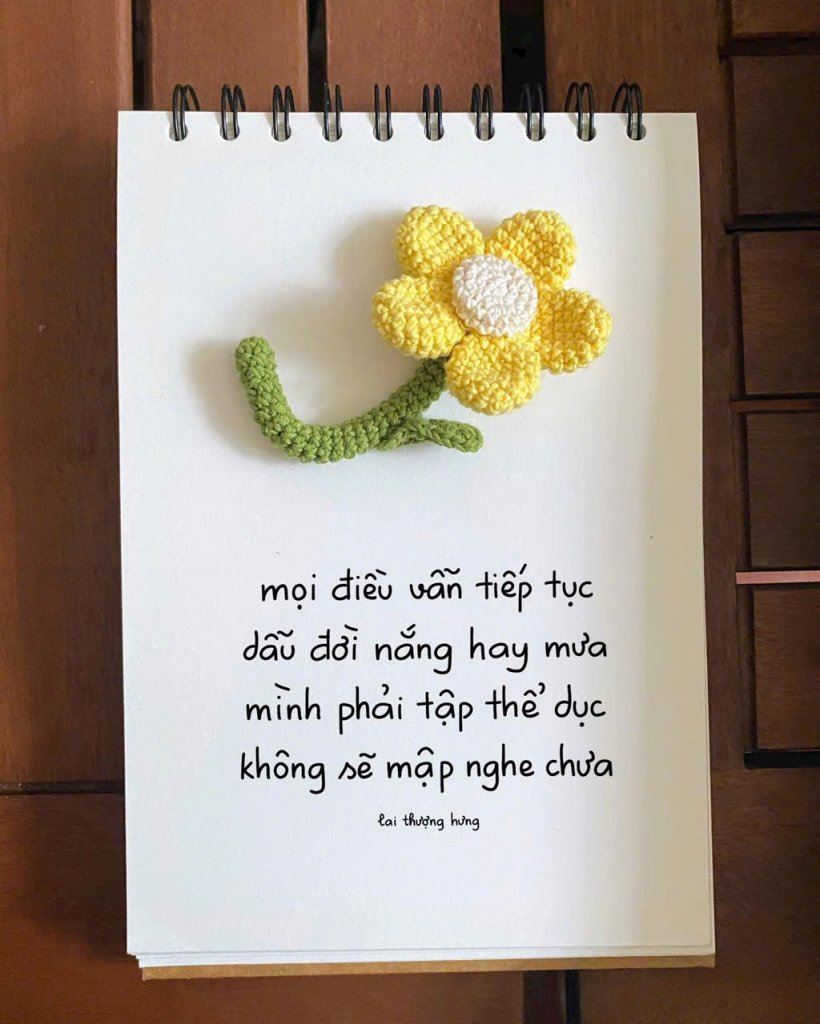 mọi điều vẫn tiếp tục
dẫu đời nắng hay mưa
mình phải tập thể dục
không sẽ mập nghe chưa
lai thượng hưng